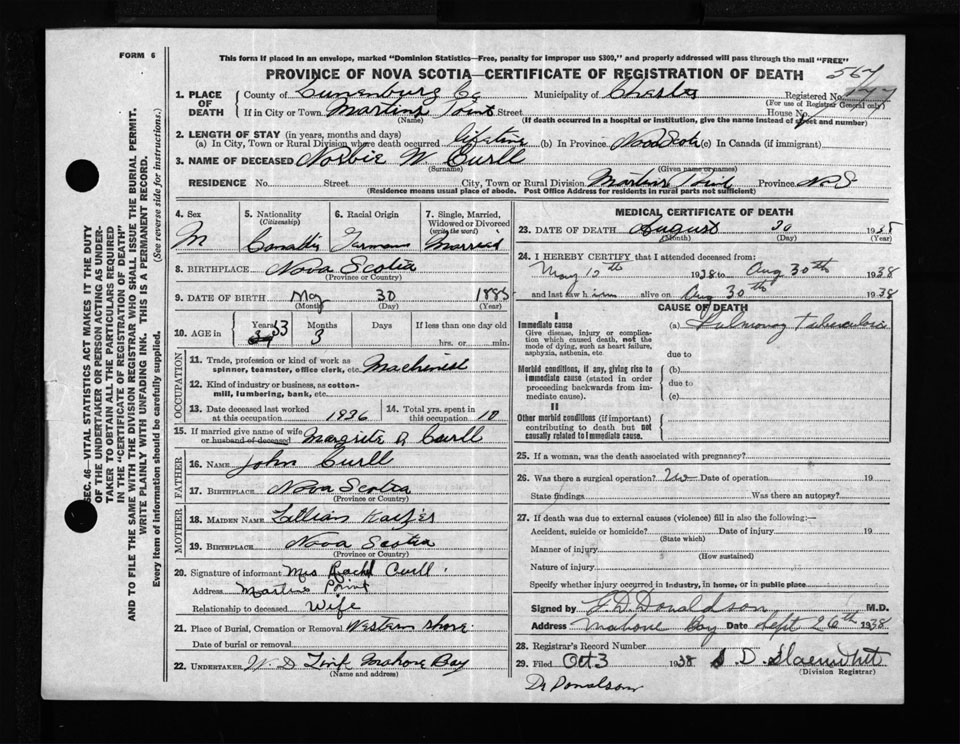 FORM 6
This form if placed in an envelope, marked "Dominion Statistics—Free, penalty for improper use $300," and properly addressed will pass through the mail "FREE"
PROVINCE OF NOVA SCOTIA—CERTIFICATE OF REGISTRATION OF DEATH 567
1. PLACE OF DEATH County of Lunenburg Co Municipality of Chester Registered No. 177
(For use of Registrar General only)
If in City or Town Martins Point Street House No.
(Name) (If death occurred in a hospital or institution, give the name instead of street and number)
2. LENGTH OF STAY (in years, months and days)
(a) In City, Town or Rural Division where death occurred lifetime (b) In Province Nova Scotia (c) In Canada (if immigrant)
3. NAME OF DECEASED Norbie W Curll
(Surname) (Given name or names)
RESIDENCE No. Street City, Town or Rural Division Martins Point Province N.S
(Residence means usual place of abode. Post Office Address for residents in rural parts not sufficient)
4. Sex M
5. Nationality (Citizenship)
6. Racial Origin German
7. Single, Married, Widowed or Divorced (write the word) Married
8. BIRTHPLACE Nova Scotia
(Province or Country)
9. DATE OF BIRTH May 30 1885
(Month) (Day) (Year)
10. AGE in Years 53 Months 3 Days If less than one day old hrs. or min.
OCCUPATION
11. Trade, profession or kind of work as spinner, teamster, office clerk, etc. Machinist
12. Kind of industry or business, as cotton-mill, lumbering, bank, etc.
13. Date deceased last worked at this occupation 1936
14. Total yrs. spent in this occupation 10
15. If married give name of wife or husband of deceased A Curll
FATHER
16. Name John Curll
17. Birthplace Nova Scotia
(Province or Country)
MOTHER
18. Maiden Name Lillian
19. Birthplace Nova Scotia
(Province or Country)
20. Signature of informant Mrs Rachel Curll
Address Martins Point
Relationship to deceased Wife
21. Place of Burial, Cremation or Removal Western Shore
Date of burial or removal
22. UNDERTAKER W D Mahone Bay
(Name and address)
MEDICAL CERTIFICATE OF DEATH
23. DATE OF DEATH August 30 1938
(Month) (Day) (Year)
24. I HEREBY CERTIFY that I attended deceased from:
May 12th 1938 to Aug 30th 1938
and last saw him alive on Aug 30th 1938
CAUSE OF DEATH
I
Immediate cause
Give disease, injury or complication which caused death, not the mode of dying, such as heart failure, asphyxia, asthenia, etc
(a) Pulmonary Tuberculosis
due to
Morbid conditions, if any, giving rise to immediate cause (stated in order proceeding backwards from immediate cause).
(b)
due to
(c)
II
Other morbid conditions (if important) contributing to death but not causally related to immediate cause.
25. If a woman, was the death associated with pregnancy?
26. Was there a surgical operation? Date of operation 19
State findings Was there an autopsy?
27. If death was due to external causes (violence) fill in also the following:—
Accident, suicide or homicide? Date of injury 19
(State which)
Manner of injury
(How sustained)
Nature of injury
Specify whether injury occurred in industry, in home, or in public place
Signed by D. Donaldson M.D.
Address Mahone Bay Date Sept 26th 1938
28. Registrar's Record Number
29. Filed Oct 3 1938 D.
(Division Registrar)
Dr Donalson
SEC. 46—VITAL STATISTICS ACT MAKES IT THE DUTY
OF THE UNDERTAKER OR PERSON ACTING AS UNDER-
TAKER TO OBTAIN ALL THE PARTICULARS REQUIRED
IN THE "CERTIFICATE OF REGISTRATION OF DEATH"
AND TO FILE THE SAME WITH THE DIVISION REGISTRAR WHO SHALL ISSUE THE BURIAL PERMIT.
WRITE PLAINLY WITH UNFADING INK. THIS IS A PERMANENT RECORD.
Every item of information should be carefully supplied. (See reverse side for instructions.)